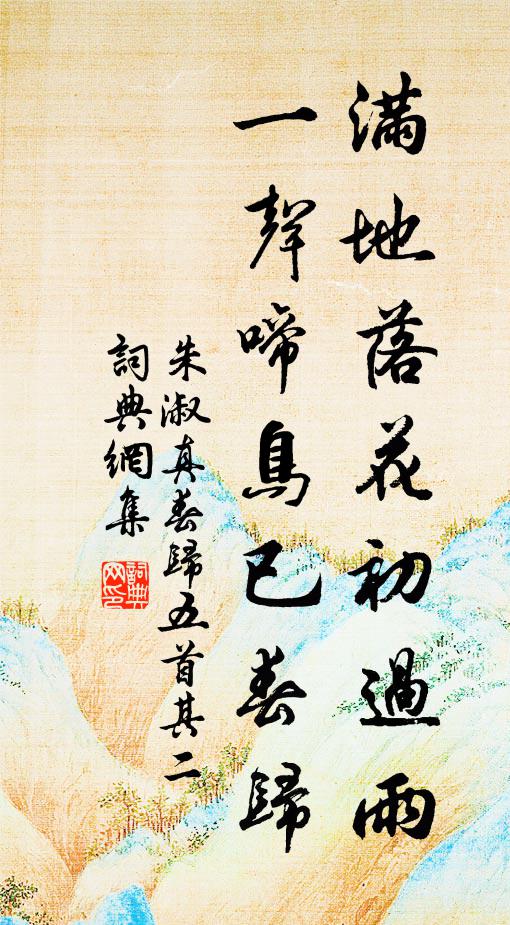 滿地落花初過雨
一聲啼鳥已春歸
朱淑真春歸五首其二
詞典網集
詞典网印